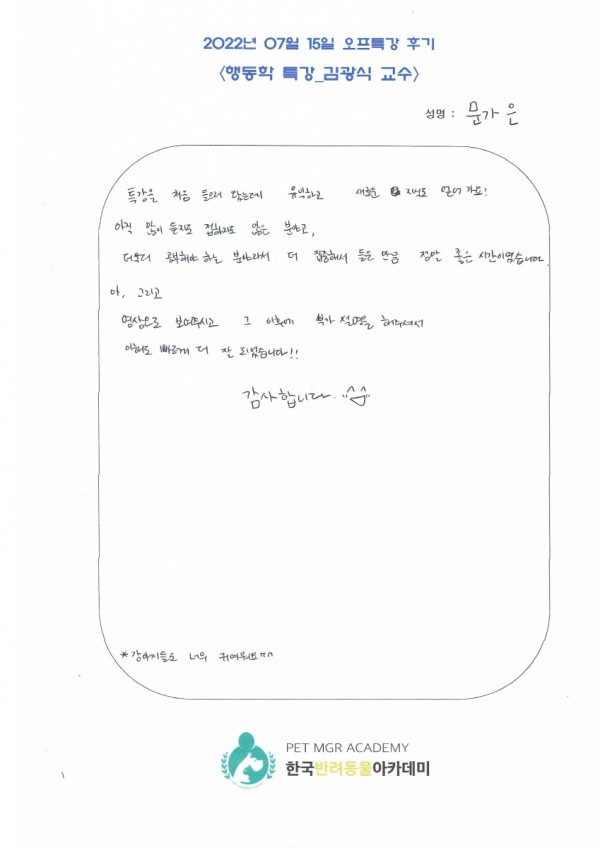 2022년 07월 15일 오프특강 후기
<행동학 특강_김광식 교수>
성명 : 문가은
특강을 처음 들으러 왔는데 유익하고 새로운 지식도 얻어 가요!
아직 많이 듣지도 접하지도 않은 분야고,
더욱더 공부해야 하는 분야라서 더 집중해서 들은 만큼 정말 좋은 시간이었습니다.
아, 그리고
영상으로 보여주시고 그 이후에 부가 설명을 해주셔서
이해도 빠르게 더 잘 되었습니다!!
감사합니다.
*강아지들도 너무 귀여워요ㅠㅠ
PET MGR ACADEMY
한국반려동물아카데미